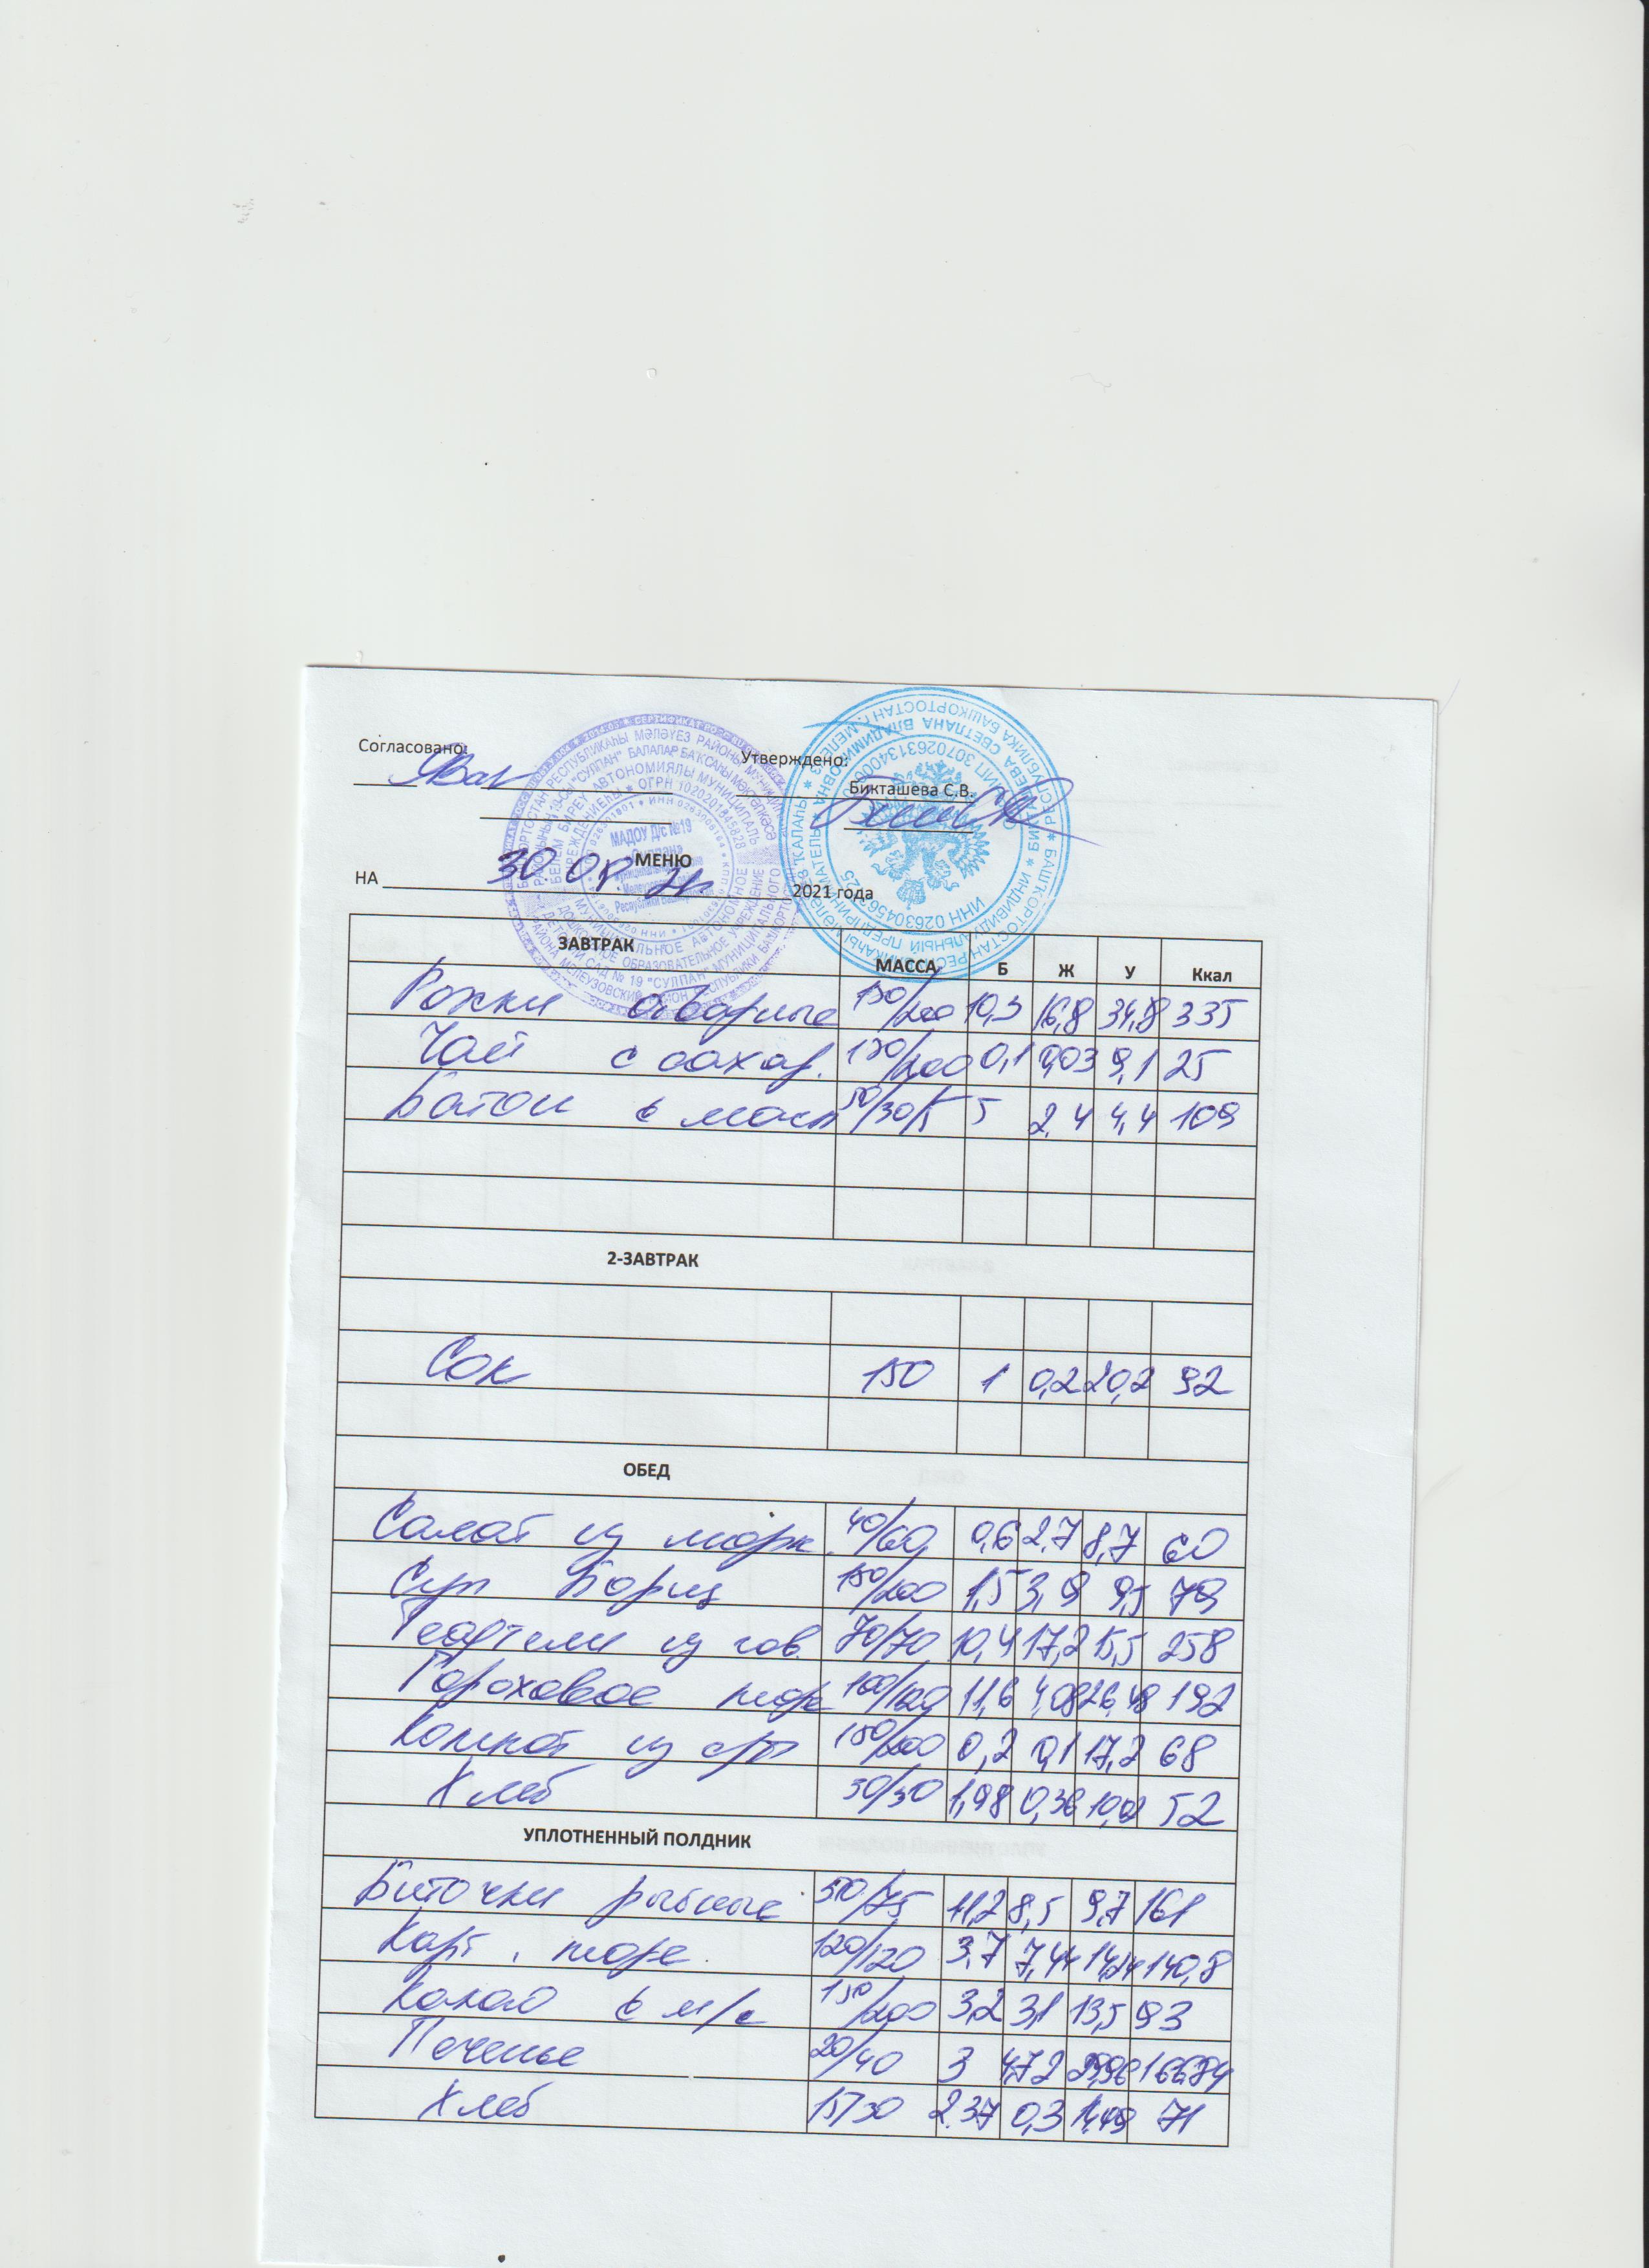 Согласовано:
Утверждено:
Бикташева С.В.
МАДОУ Д/с №19
МЕНЮ
НА 30.09 21г 2021 года
ЗАВТРАК МАССА Б Ж У Ккал
Рожки отварные 150/200 10,3 16,8 34,8 335
Чай с сахар. 150/200 0,1 0,03 9,1 25
Батон с масл 50/30/5 5 2,4 4,4 109
2-ЗАВТРАК
Сок 150 1 0,2 20,2 92
ОБЕД
Салат из морк. 40/60 0,6 2,7 8,7 60
Суп Борщ 150/200 1,5 3,9 9,5 79
Тефтели из гов. 70/70 10,4 17,2 15,5 258
Гороховое пюре 100/120 11,6 4,08 26,48 192
Компот из с/ф 150/200 0,2 0,1 17,2 68
Хлеб 30/30 1,98 0,36 10,02 52
УПЛОТНЕННЫЙ ПОЛДНИК
Биточки рыбные 50/75 11,2 8,5 9,7 161
Карт. пюре. 120/120 3,7 7,44 14,24 140,8
Какао с м/с 150/200 3,2 3,1 13,5 93
Печенье 20/40 3 4,72 166,84
Хлеб 15/30 2.37 0,3 71